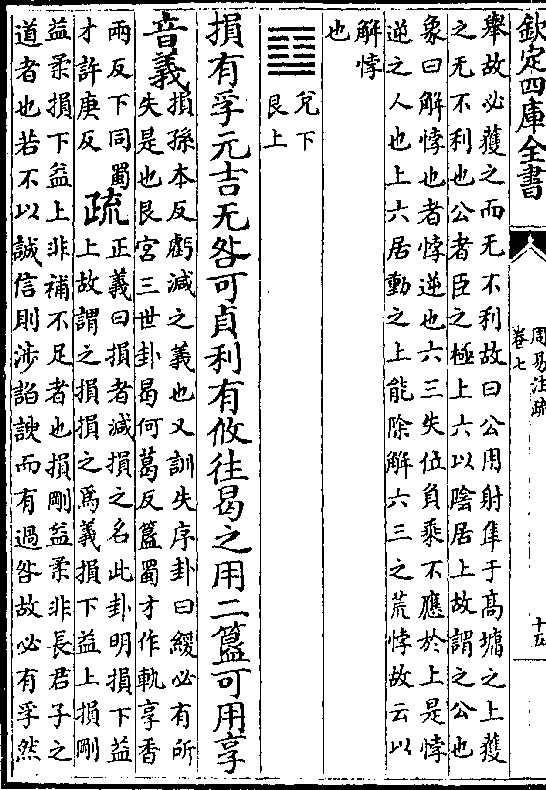 欽定四庫全書
周易注疏
卷七
十五
舉故必獲之而无不利故曰公用射隼于高墉之上獲
之无不利也公者臣之極上六以陰居上故謂之公也
象曰解悖也者悖逆也六三失位負乘不應於上是悖
逆之人也上六居動之上能除解六三之荒悖故云以
解悖
也
兌下
艮上
損有孚元吉无咎可貞利有攸往曷之用二簋可用享
音義損孫本反虧減之義也又訓失序卦曰緩必有所
失是也艮宮三世卦曷何葛反簋蜀才作軌享香
兩反下同蜀
才許庚反
疏正義曰損者減損之名此卦明損下益
上故謂之損損之為義損下益上損剛
益柔損下益上非補不足者也損剛益柔非長君子之
道者也若不以誠信則涉諂諛而有過咎故必有孚然